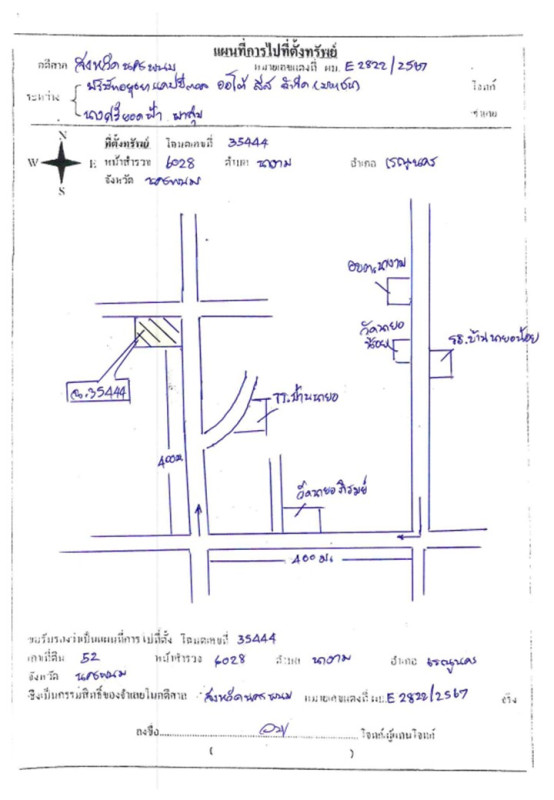 แผนที่การไปที่ตั้งทรัพย์
คดีศาล จังหวัดนครพนม หมายเลขแดงที่ ผบ. E 2822/2567
ระหว่าง { บริษัทอยุธยา แคปปิตอล ออโต้ ลีส จำกัด (มหาชน) โจทก์
จำเลย
N
W E
S
ที่ตั้งทรัพย์ โฉนดเลขที่ 35444
หน้าสำรวจ 6028 ตำบล นางาม อำเภอ เรณูนคร
จังหวัด นครพนม
อบต.นางาม
วัดนายอ
น้อย
รร.บ้านนายอน้อย
ฉ.35444
รร.บ้านนายอ
400ม
วัดนายอภิรมย์
400 ม.
ขอรับรองว่าเป็นแผนที่การไปที่ตั้ง โฉนดเลขที่ 35444
เลขที่ดิน 52 หน้าสำรวจ 6028 ตำบล นางาม อำเภอ เรณูนคร
จังหวัด นครพนม
ซึ่งเป็นกรรมสิทธิ์ของจำเลยในคดีศาล จังหวัดนครพนม หมายเลขแดงที่ ผบ. E 2822/2567 จริง
ลงชื่อ............................................โจทก์/ผู้แทนโจทก์
( )